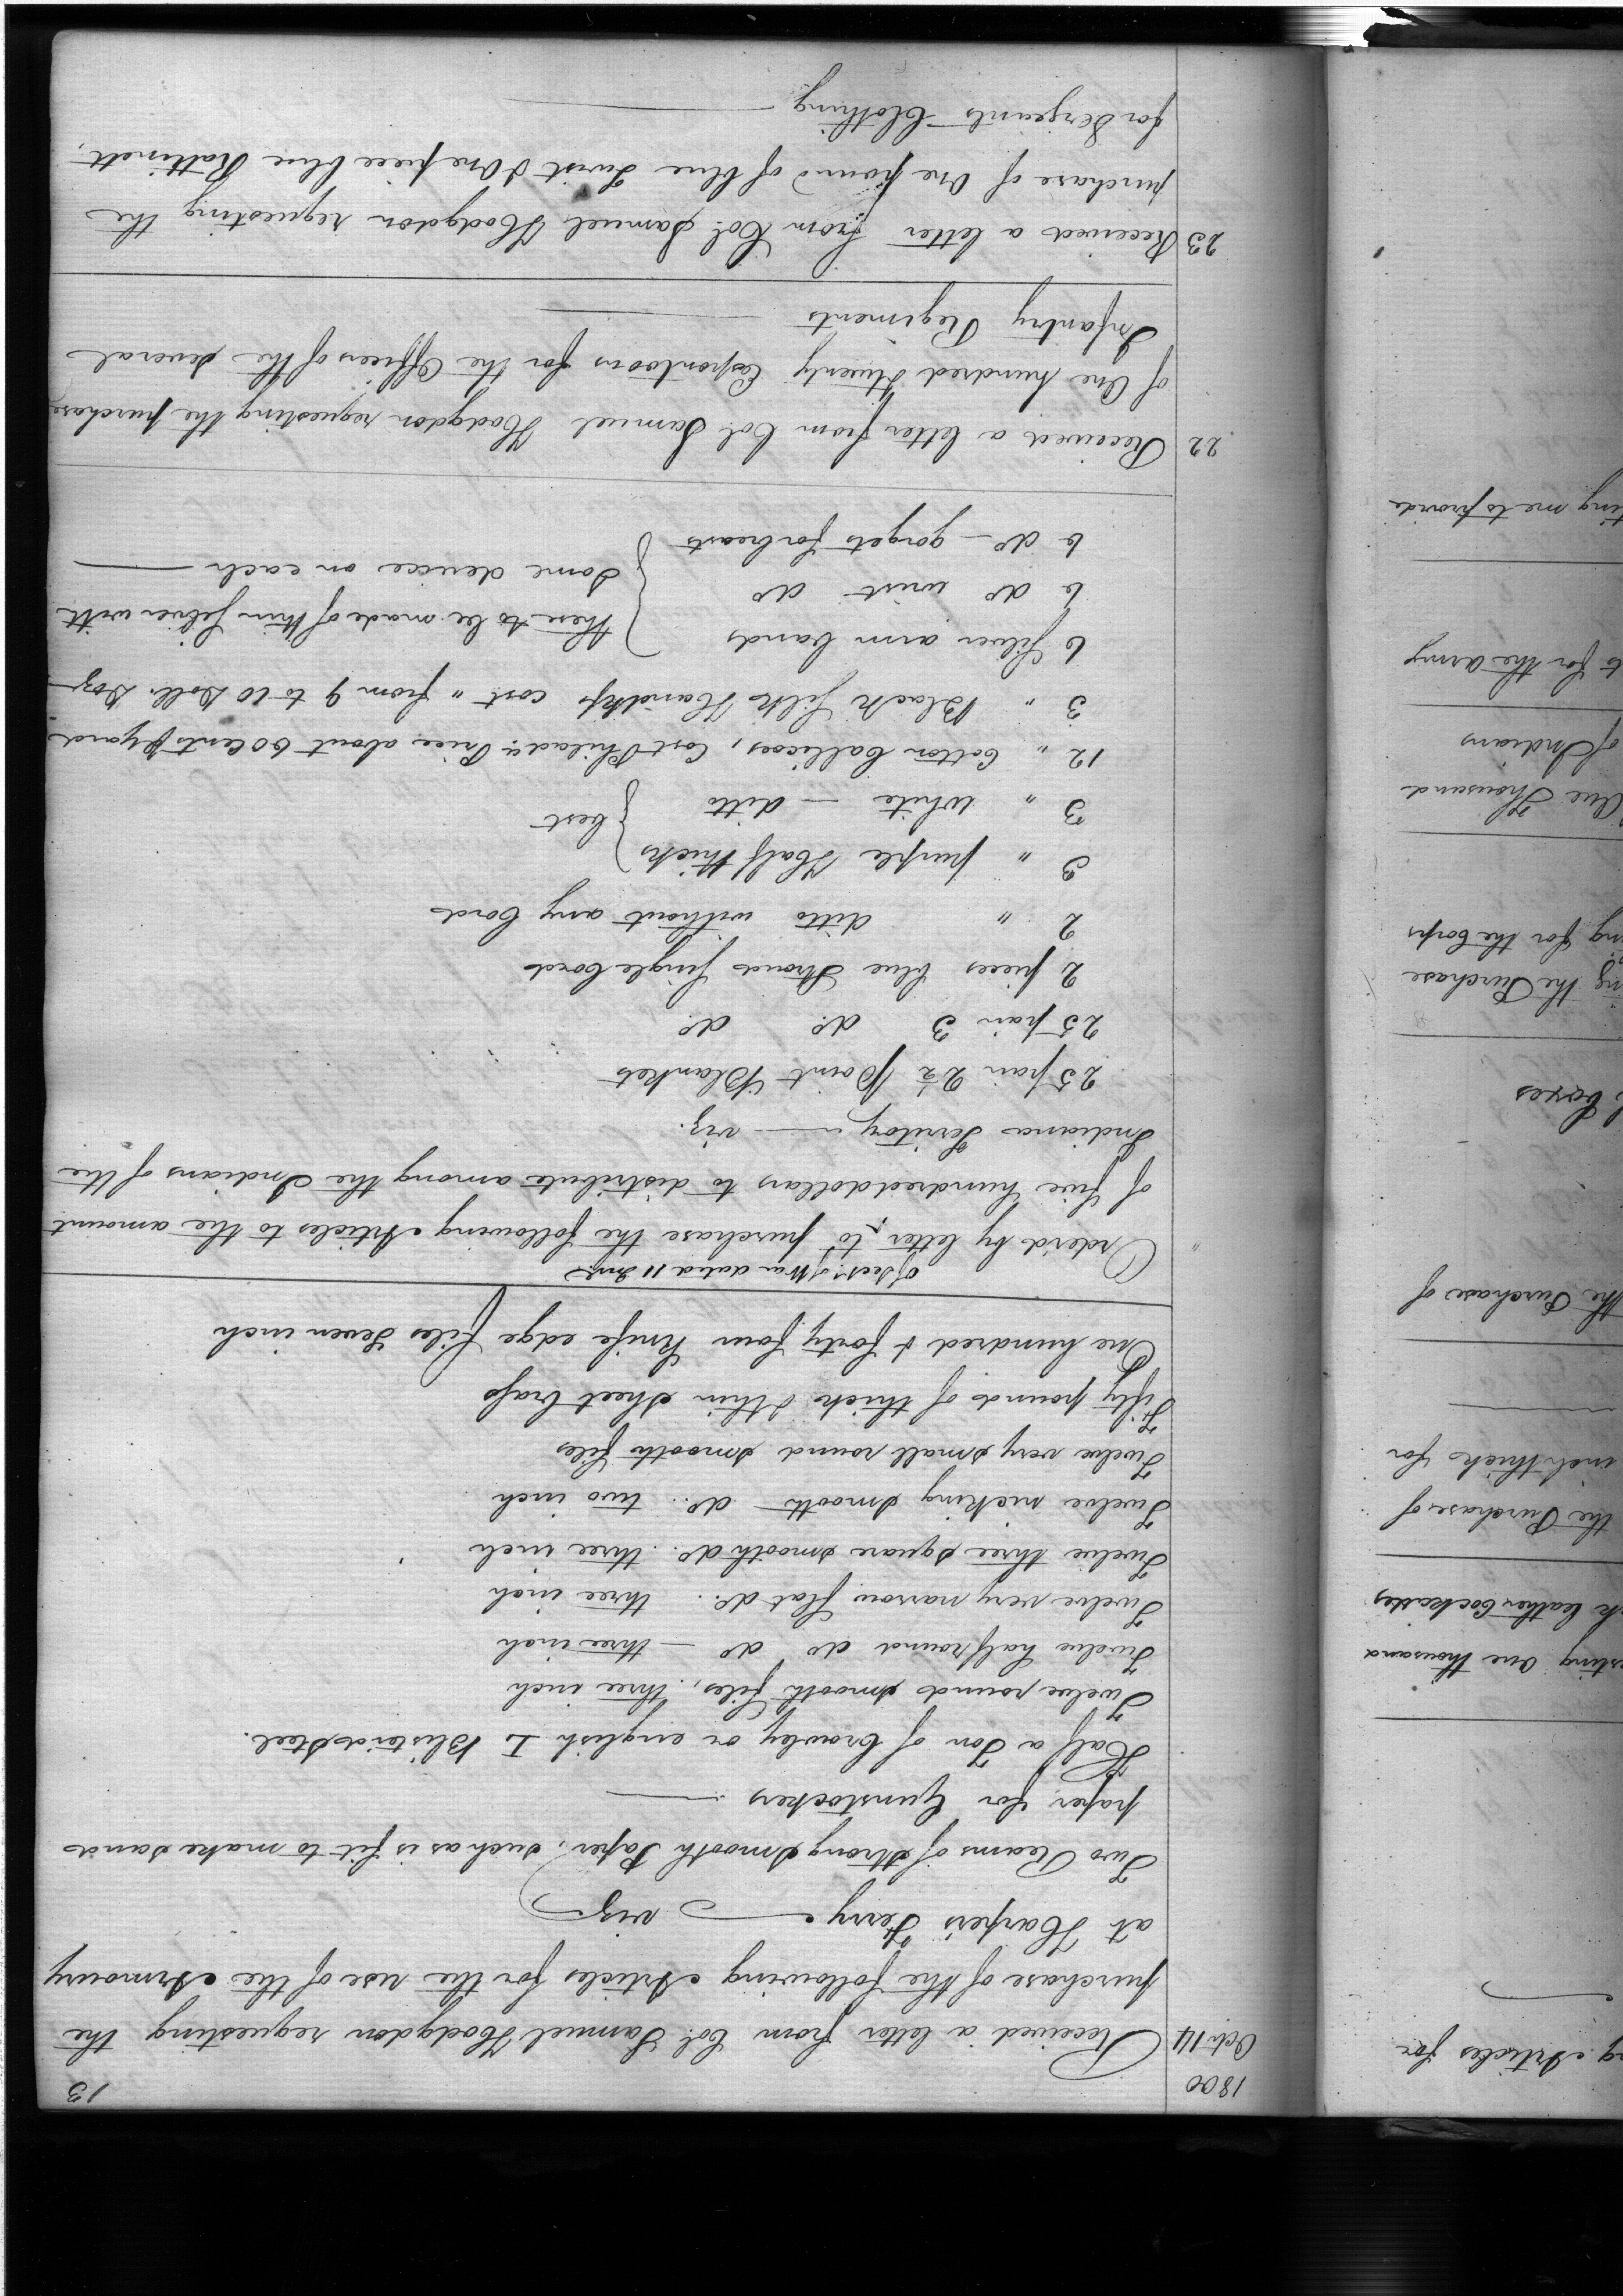 1800
13
Octr. 14 Received a letter from Col. Samuel Hodgdon requesting the
purchase of the following Articles for the use of the Armoury
at Harper's Ferry viz
Two Reams of strong smooth Paper, such as is fit to make sand
paper for Gunstockers
Half a Ton of Crowley or english I Blister'd Steel.
Twelve round smooth files, three inch
Twelve half round do do — three inch
Twelve very narrow flat do. three inch
Twelve three square smooth do. three inch
Twelve nicking smooth do. two inch
Twelve very small round smooth files
Fifty pounds of thick & thin sheet brass
One hundred & forty four Knife edge files Seven inch
of Secy. of War dated 11 Inst.
" Order'd by letter to purchase the following Articles to the amount
of five hundred dollars to distribute among the Indians of the
Indiana Teritory — viz.
25 pair 2½ Point Blankets
25 pair 3 do. do.
2 pieces blue Strouds Single Cord
2 " ditto without any Cord
3 " purple Half thicks } best
3 " White — ditto
12 " Cotton Callicoes, Cost Philada. Price about 60 Cents P yard
3 " Black Silk Handkfs cost " from 9 to 10 Doll. Doz
6 Silver arm bands } these to be made of thin Silver with
6 do wrist do
6 do — gorgets for breasts } Some device on each
22 Received a letter from Col. Samuel Hodgdon requesting the purchase
of One hundred & twenty Espontoons for the Officers of the several
Infantry Regiments
23 Received a letter from Col. Samuel Hodgdon requesting the
purchase of One pound of blue Twist & One piece blue Rattinett,
for Serjeants Clothing
Articles for
one thousand
leather Cockades
the Purchase of
inch thick for
the Purchase of
boxes
the Purchase
for the Corps
One Thousand
of Indians
for the Army
me to provide